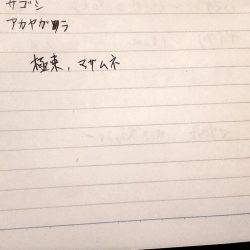 サゴシ
アカヤガラ
極東，マサムネ